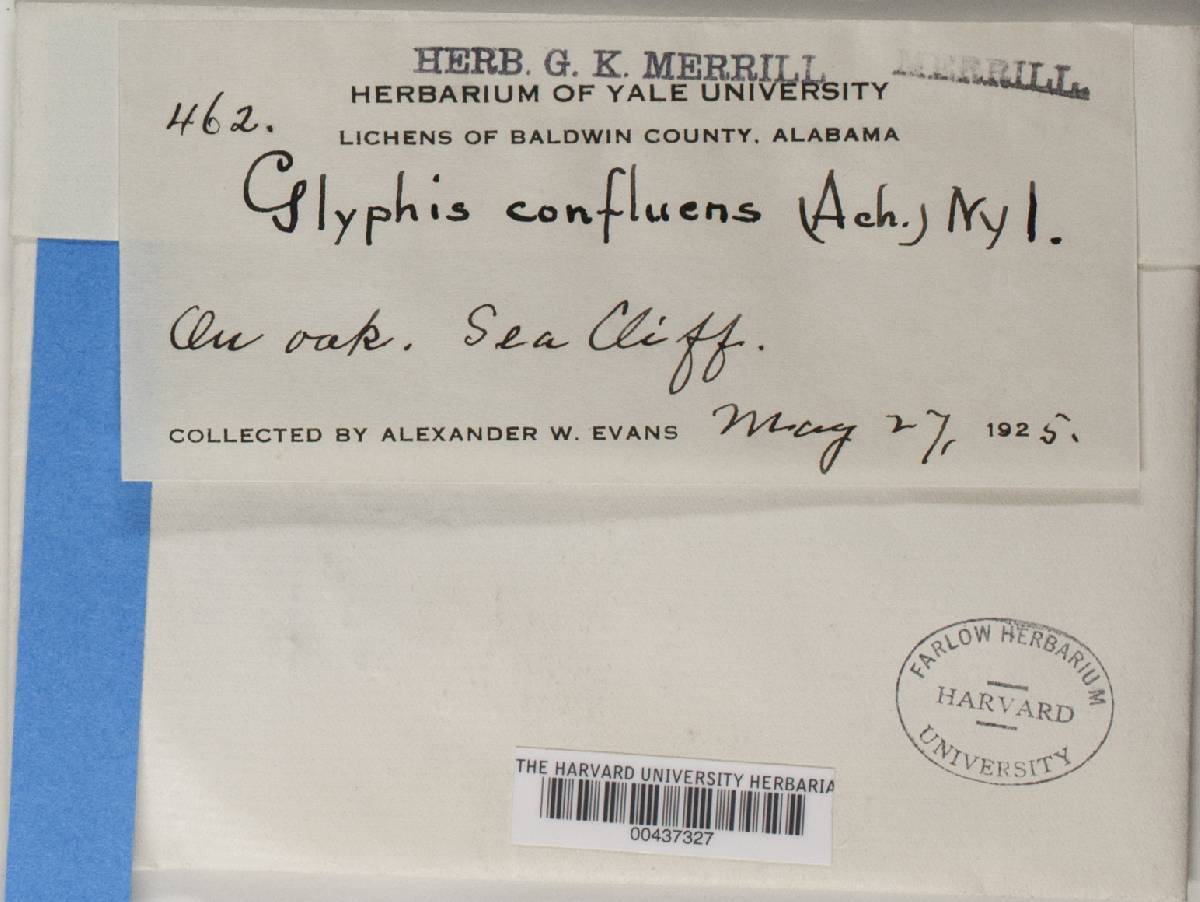 HERB. G. K. MERRILL
MERRILL.
HERBARIUM OF YALE UNIVERSITY
462.
LICHENS OF BALDWIN COUNTY, ALABAMA
Glyphis confluens (Ach.) Nyl.
On oak. Sea Cliff.
COLLECTED BY ALEXANDER W. EVANS May 27, 1925.
FARLOW HERBARIUM
HARVARD
UNIVERSITY
THE HARVARD UNIVERSITY HERBARIA
00437327